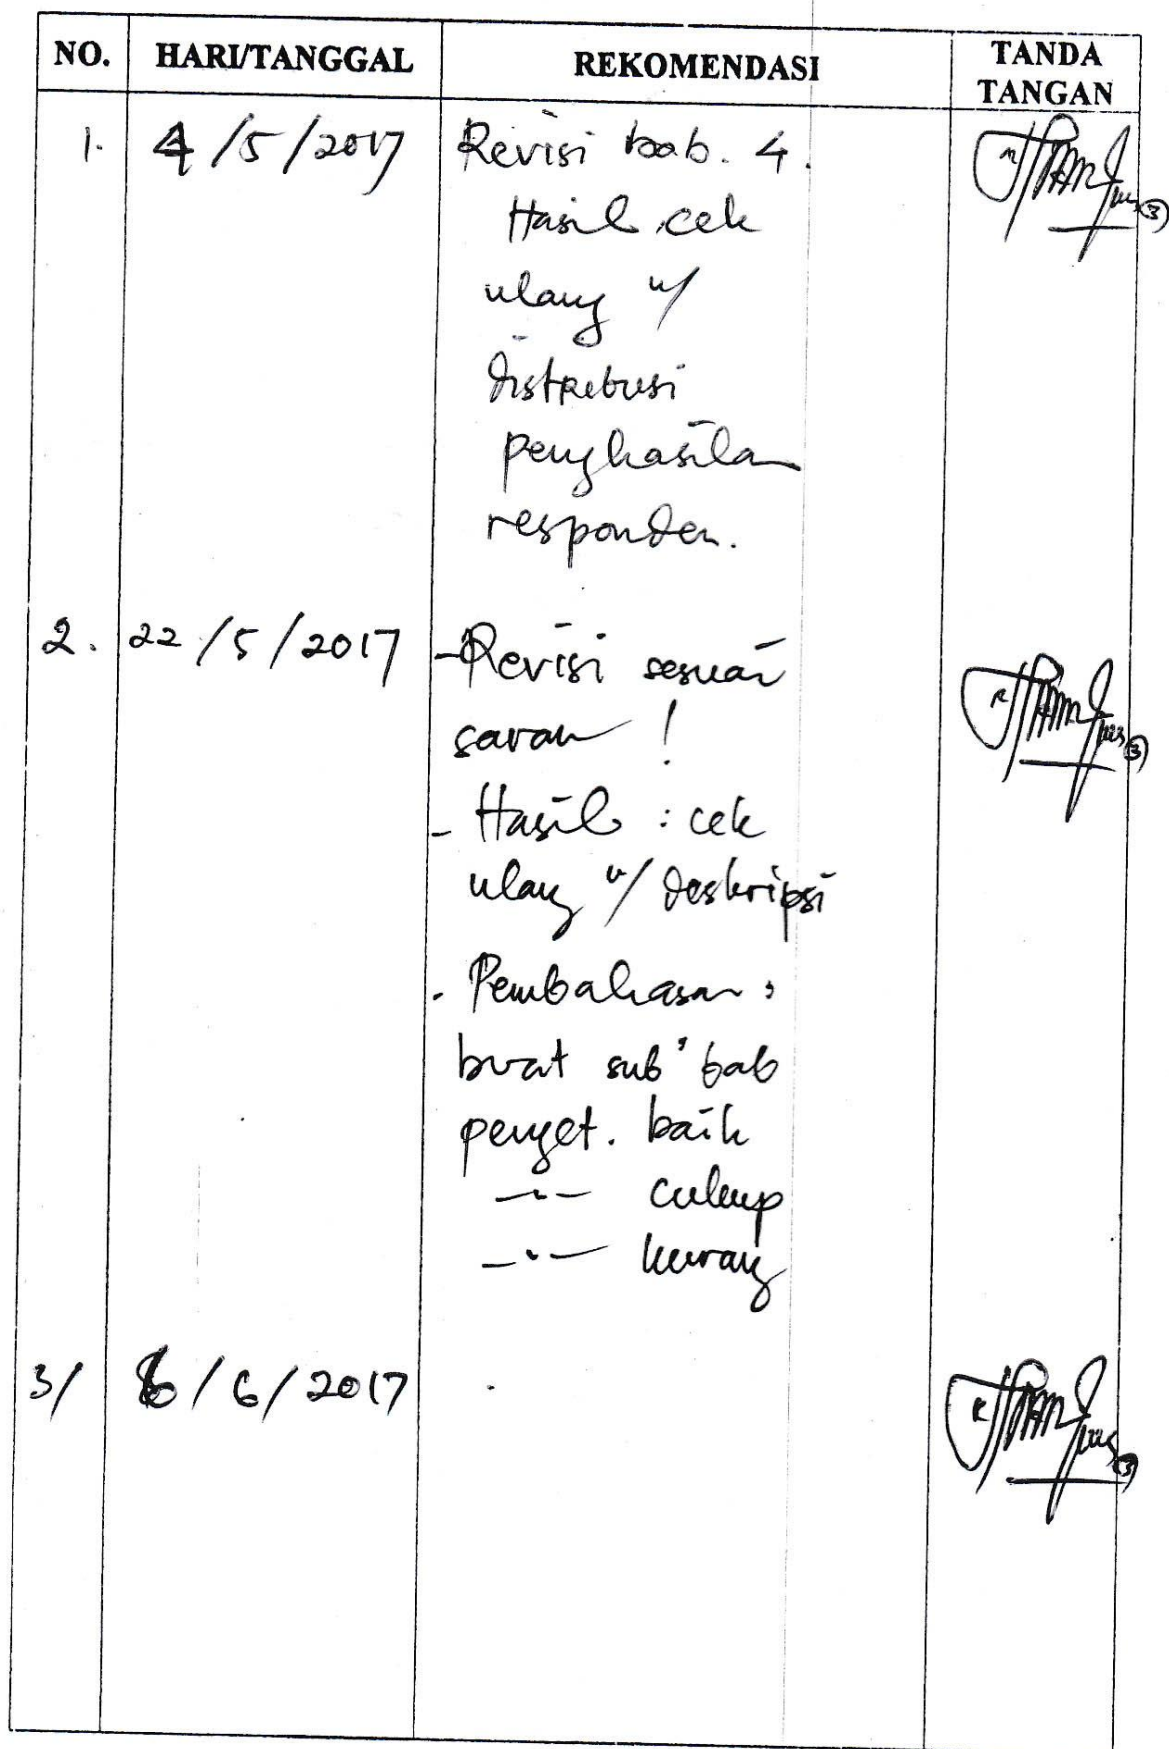 NO. HARI/TANGGAL REKOMENDASI TANDA TANGAN
1. 4/5/2017 Revisi bab. 4.
Hasil cek
ulang u/
distribusi
penghasilan
responden.
2. 22/5/2017 - Revisi sesuai
saran !
- Hasil : cek
ulang u/ deskripsi
- Pembahasan :
buat sub bab
penget. baik
-"- cukup
-"- kurang
3/ 6/6/2017